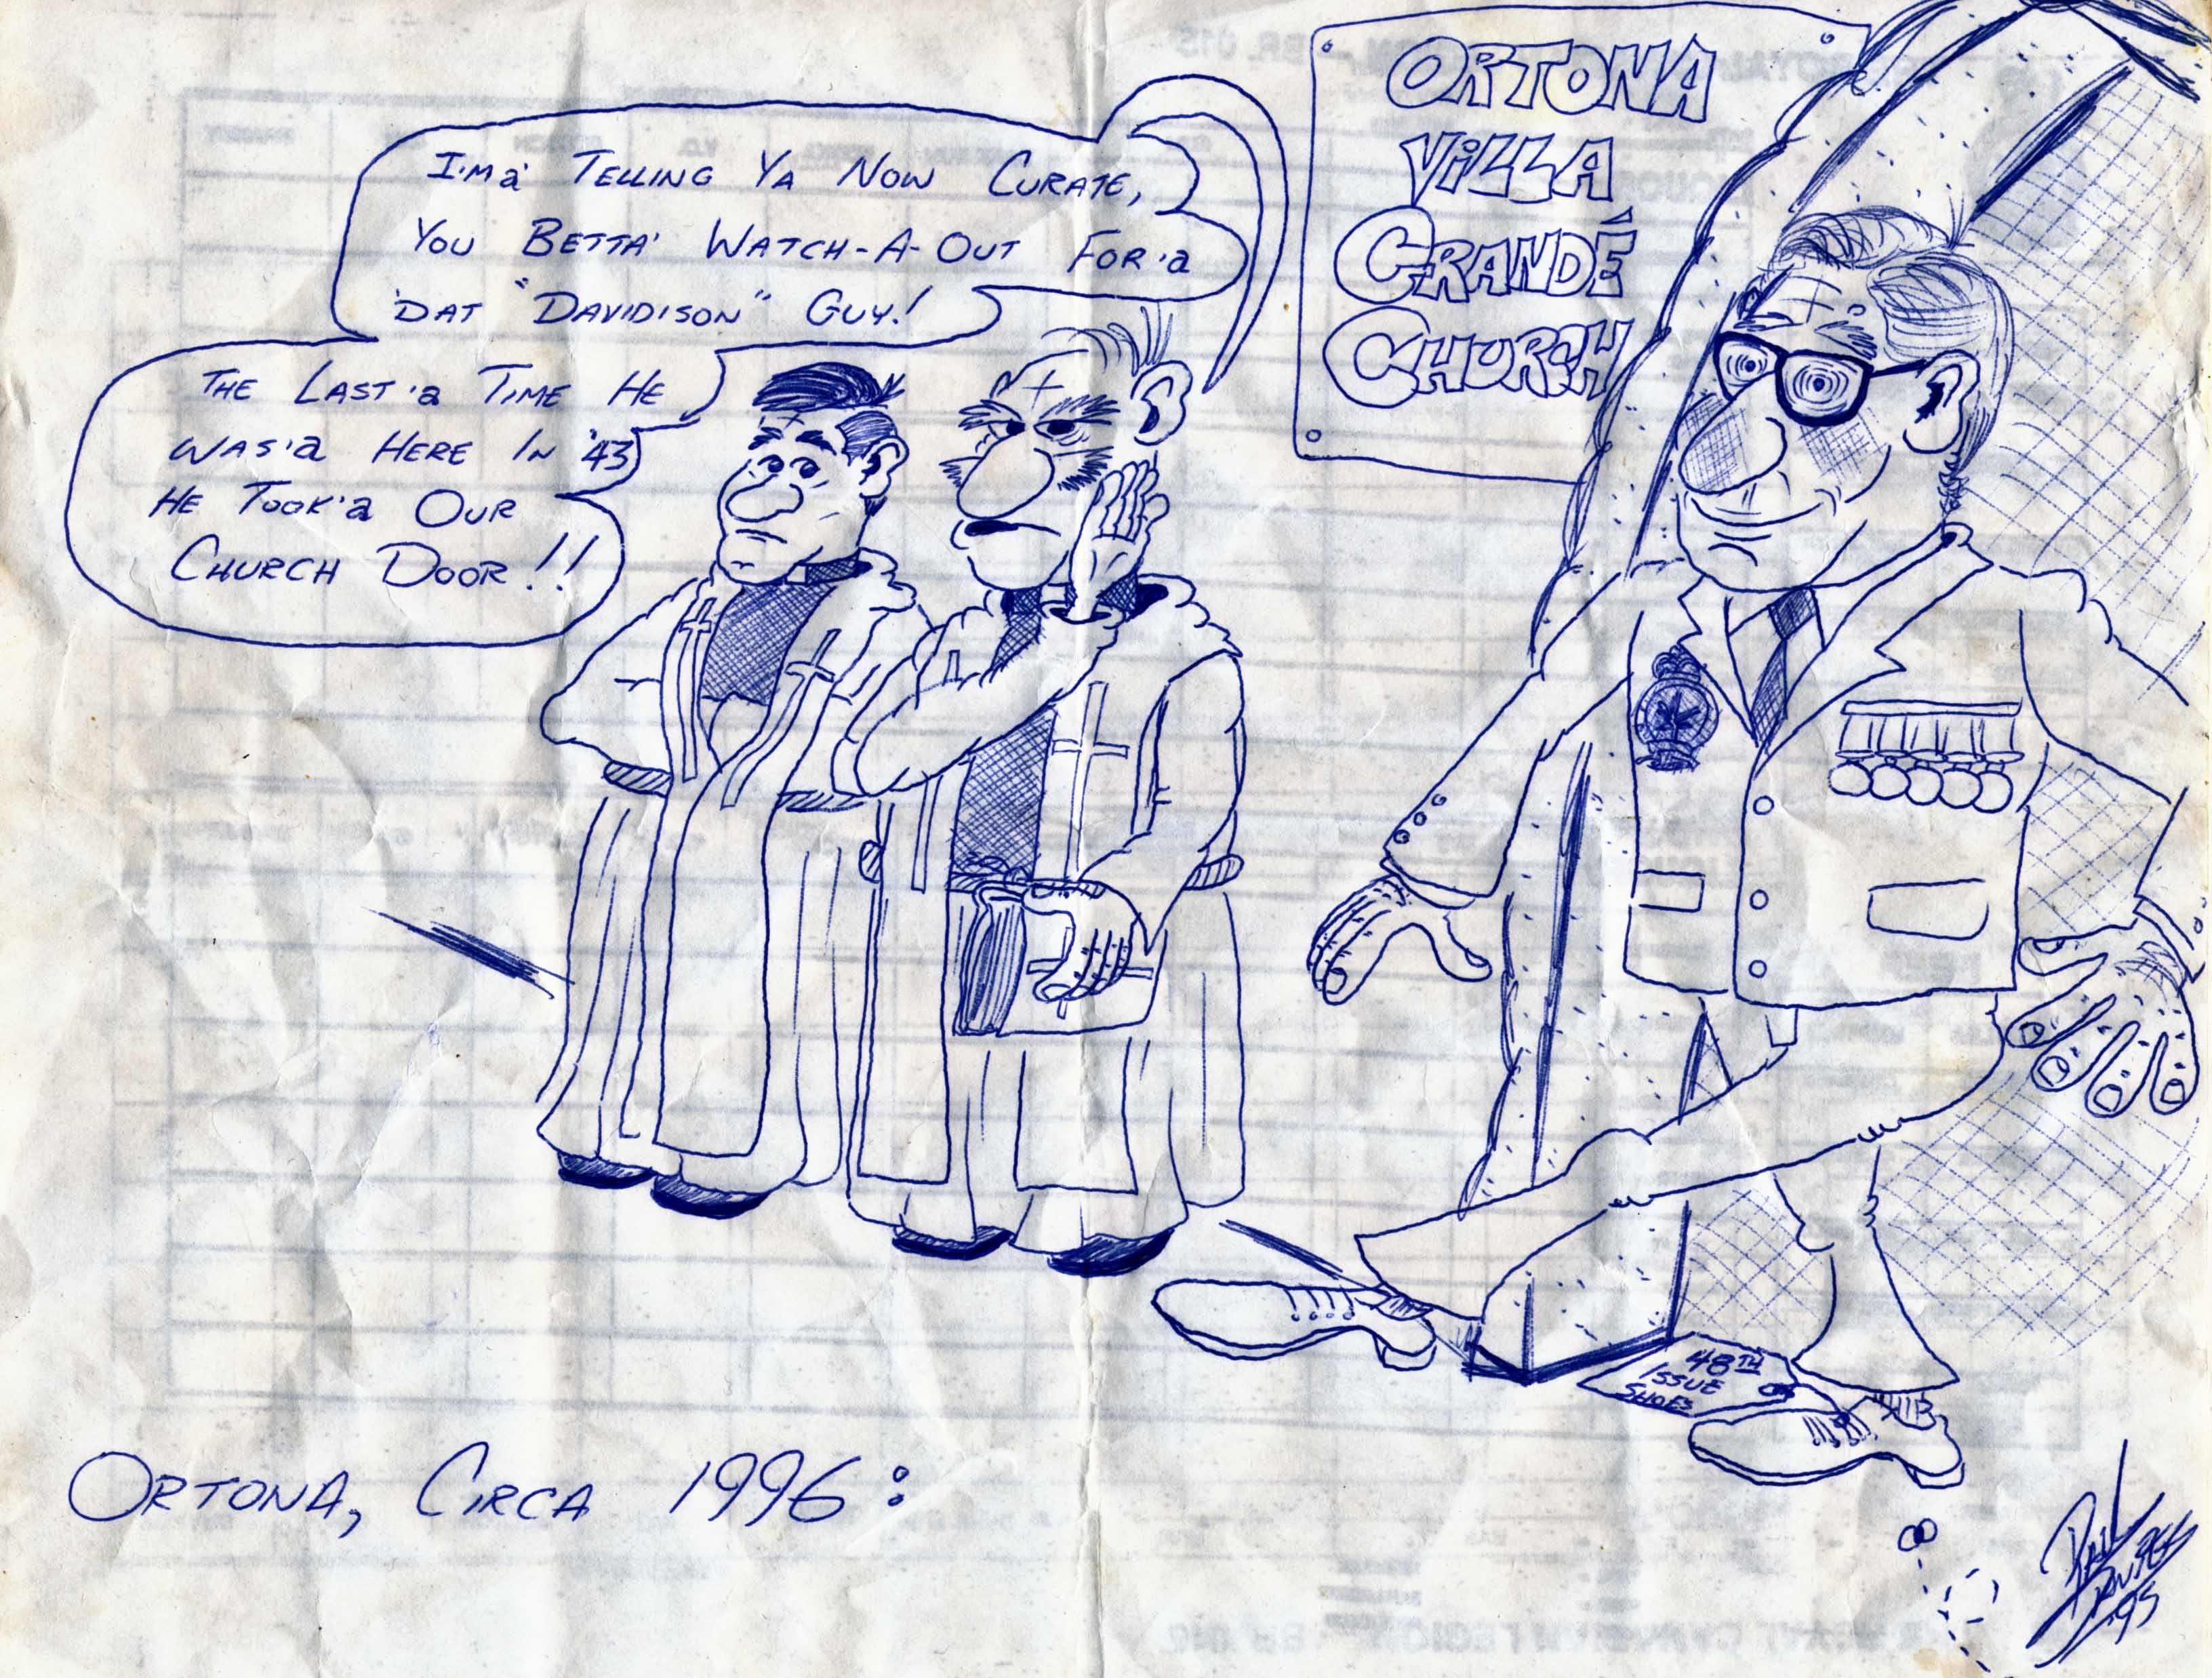 I'm a' TELLING YA NOW CURATE,
YOU BETTA' WATCH-A-OUT FOR'a
'DAT "DAVIDISON" GUY!
THE LAST'a TIME HE
WAS'a HERE IN '43
HE TOOK'a OUR
CHURCH DOOR!!
ORTONA
ViLLA
GRANDÉ
CHURCH
48TH
ISSUE
SHOES
ORTONA, CIRCA 1996:
95